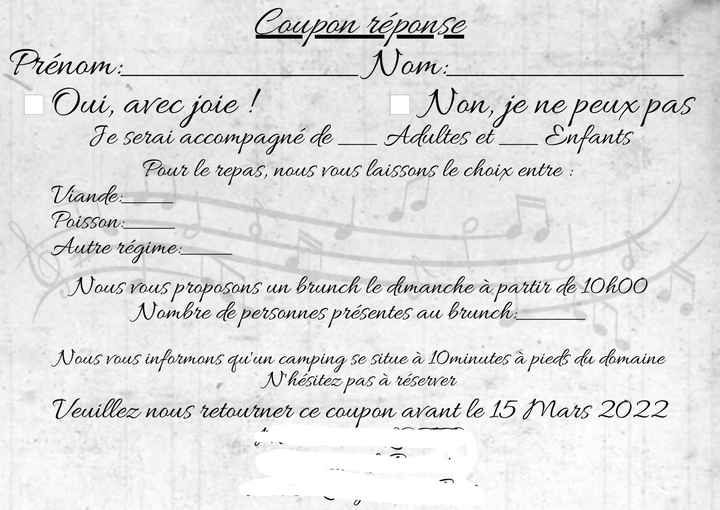 Coupon réponse
Prénom:_______________ Nom:_______________
Oui, avec joie ! Non, je ne peux pas
Je serai accompagné de ___ Adultes et ___ Enfants
Pour le repas, nous vous laissons le choix entre :
Viande:____
Poisson:____
Autre régime:____
Nous vous proposons un brunch le dimanche à partir de 10h00
Nombre de personnes présentes au brunch:_____
Nous vous informons qu'un camping se situe à 10minutes à pieds du domaine
N'hésitez pas à réserver
Veuillez nous retourner ce coupon avant le 15 Mars 2022